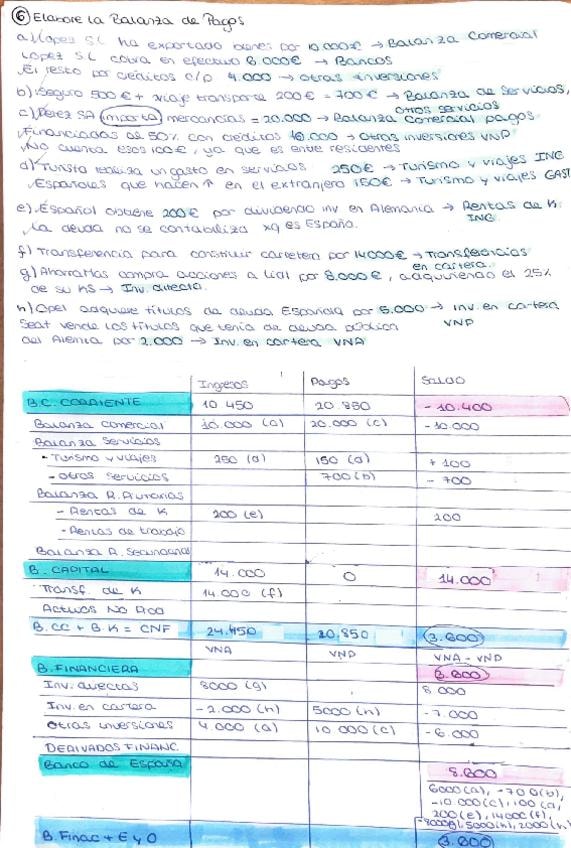 ⑥ Elabore la Balanza de Pagos
a) López SL ha exportado bienes por 10.000€ → Balanza Comercial
López SL cobra en efectivo 6.000€ → Bancos
El resto por créditos c/p 4.000 → otras inversiones
b) Seguro 500€ + viaje transporte 200€ = 700€ → Balanza de Servicios,
otros servicios
c) Pérez SA importa mercancías = 20.000 → Balanza Comercial pagos
Financiadas al 50% con créditos 10.000 → Otras inversiones VNP
No cuenta esos 100€, ya que es entre residentes
d) Turista realiza un gasto en servicios 250€ → Turismo y viajes ING
Españoles que hacen ↑ en el extranjero 150€ → Turismo y viajes GAST
e) Español obtiene 200€ por dividendo inv en Alemania → Rentas de K
ING.
La deuda no se contabiliza xq es España.
f) Transferencia para construir carretera por 14000€ → Transferencias
en cartera.
g) Ahorramas compra acciones a Lidl por 8.000€, adquiriendo el 25%
de su KS → Inv. directa.
h) Opel adquiere títulos de deuda Española por 5.000 → inv. en cartera
VNP
Seat vende los títulos que tenía de deuda pública
del Alemia por 2.000 → Inv. en cartera VNA
Ingresos Pagos Saldo
B.C. CORRIENTE 10 450 20.850 - 10.400
Balanza comercial 10.000 (a) 20.000 (c) - 10.000
Balanza Servicios
- Turismo y viajes 250 (d) 150 (d) + 100
- otros servicios 700 (b) - 700
Balanza R. Primarias
- Rentas de K 200 (e) 200
- Rentas de trabajo
Balanza R. Secundarias
B. CAPITAL 14.000 0 14.000
Transf. de K 14.000 (f)
Activos NO
B.CC + B.K = CNF 24.450 20,850 3.600
VNA VNP VNA - VNP
B. FINANCIERA 3.600
Inv. directas 8000 (g) 8.000
Inv. en cartera - 2.000 (h) 5000 (h) - 7.000
Otras inversiones 4.000 (a) 10.000 (c) - 6.000
DERIVADOS FINANC.
Banco de España 8.600
6000 (a), - 700 (b),
- 10 000 (c), 100 (d),
200 (e), 14000 (f),
-8000(g), 5000(h), 2000(h)
B. Financ + E y O 3.600